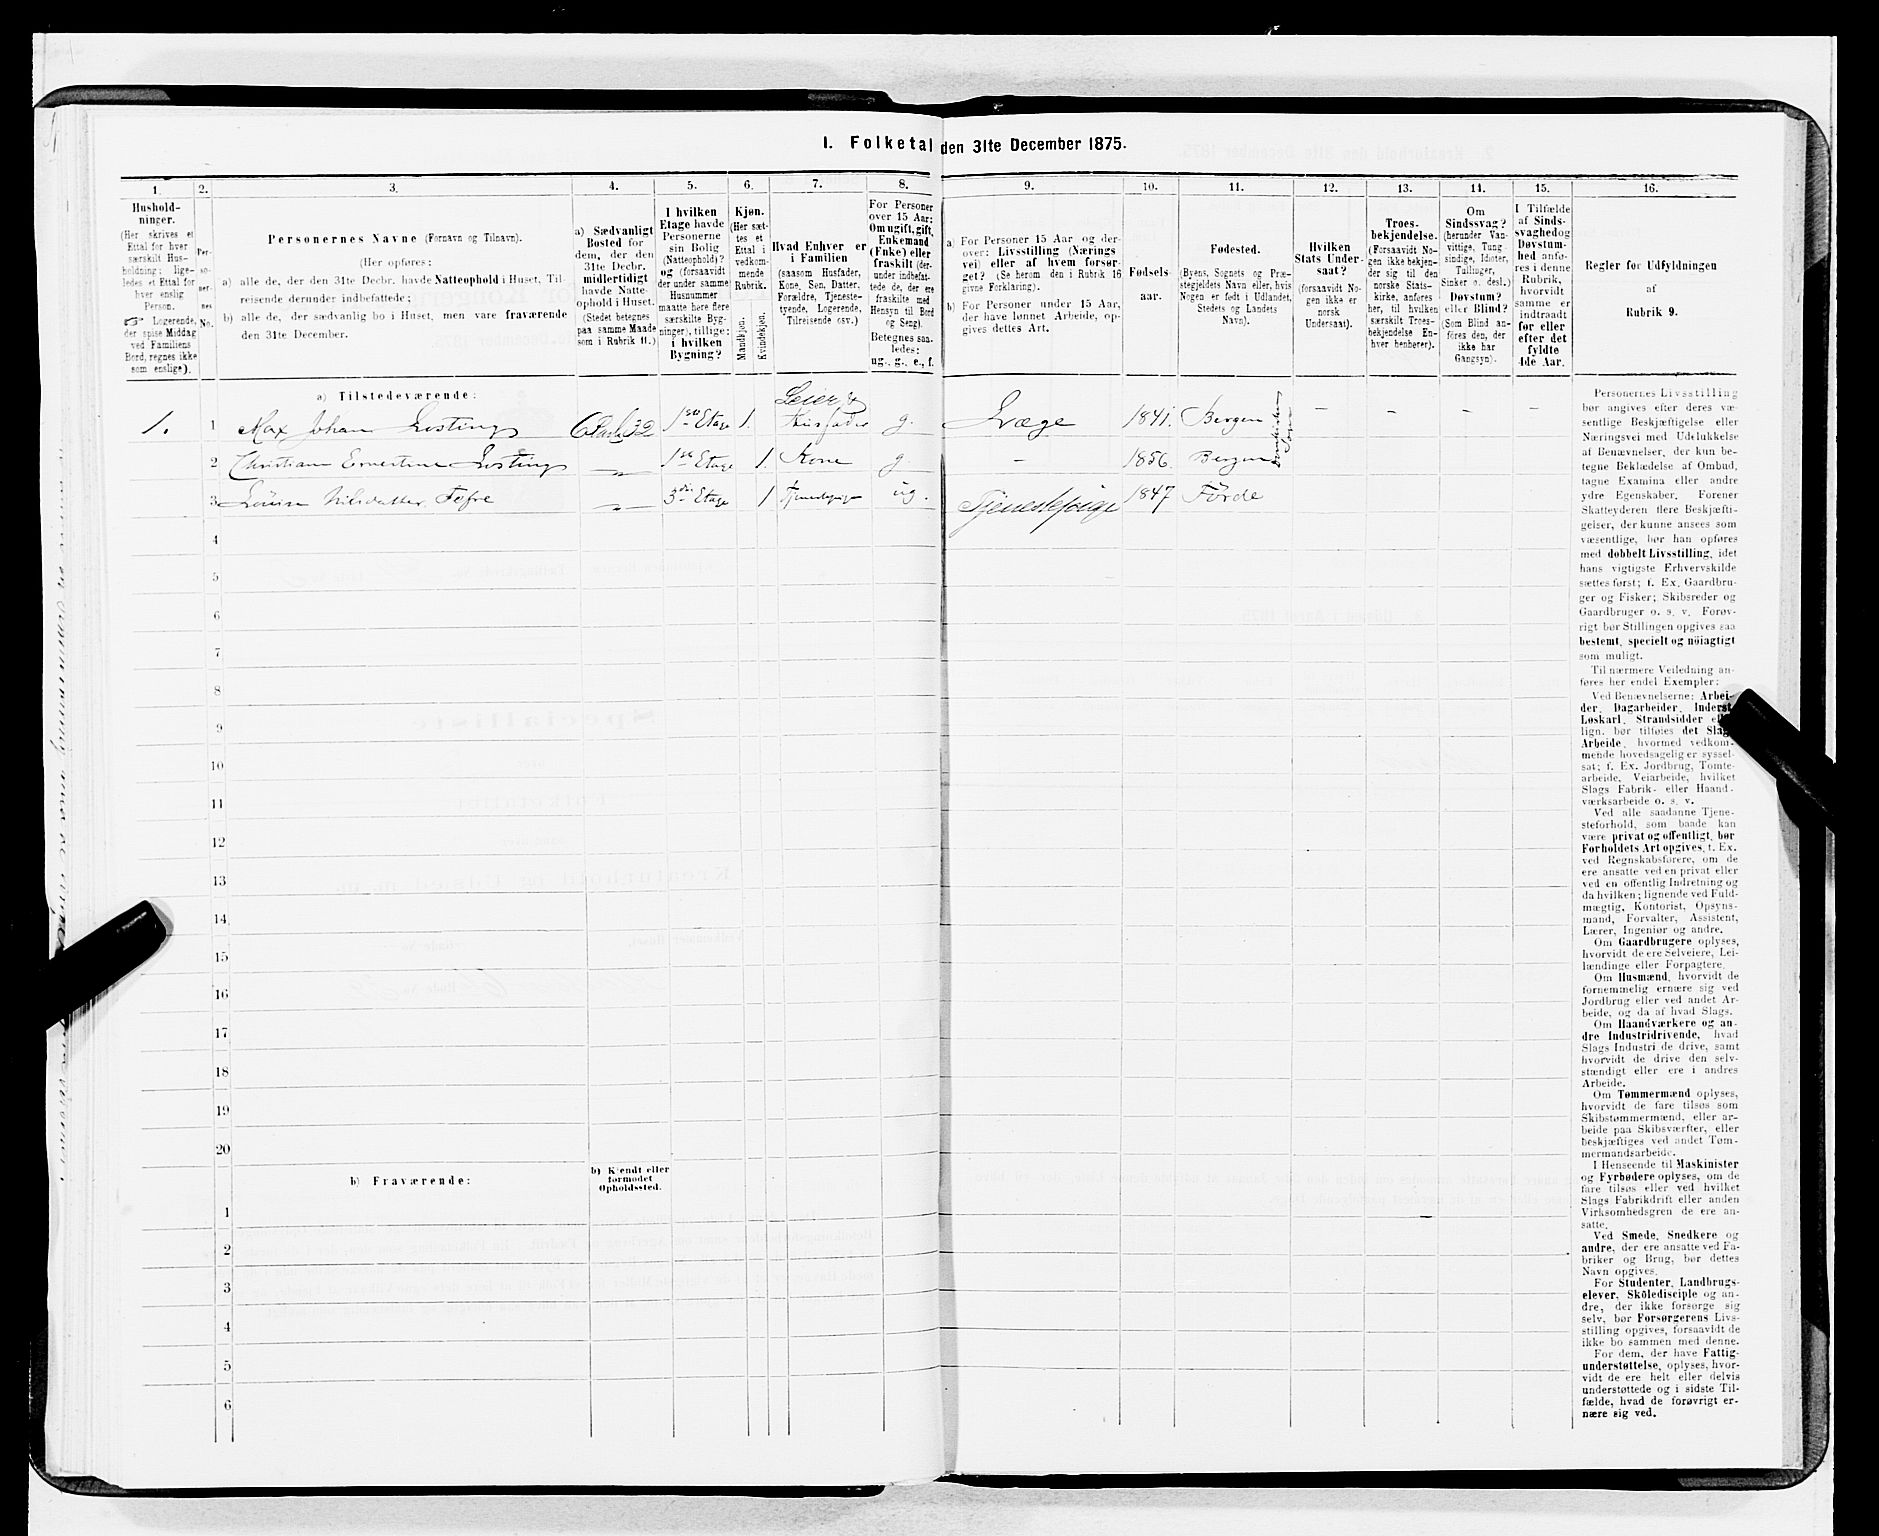 I. Folketal den 31te December 1875.
1.
2.
3.
4.
5.
6.
7.
8.
9.
10.
11.
12.
13.
14.
15.
16.
Hushold-
ninger.
(Her skrives et
Ettal for hver
særskilt Hus-
holdning; lige-
ledes et Ettal for
hver enslig
Person.
☞ Logerende,
der spise Middag
ved Familiens
Bord, regnes ikke
som enslige).
Per-
so-
ner-
nes
No.
Personernes Navne (Fornavn og Tilnavn).
(Her opføres:
a) alle de, der den 31te Decbr. havde Natteophold i Huset, Til-
reisende derunder indbefattede;
b) alle de, der sædvanlig bo i Huset, men vare fraværende
den 31te December.
a) Sædvanligt
Bosted for
dem, der den
31te Decbr.
midlertidigt
havde Natte-
ophold i Huset.
(Stedet betegnes
paa samme Maade
som i Rubrik 11.)
I hvilken
Etage havde
Personerne
sin Bolig
(Natteophold)?
og (forsaavidt
der under samme
Husnummer
maatte høre flere
særskilte Byg-
ninger), tillige:
i hvilken
Bygning?
Kjøn.
(Her sæt-
tes et
Ettal i
vedkom-
mende
Rubrik.
Mandkjøn.
Kvindekjøn.
Hvad Enhver er
i Familien
(saasom Husfader,
Kone, Søn, Datter,
Forældre, Tjeneste-
tyende, Logerende,
Tilreisende osv.)
For Personer
over 15 Aar:
Om ugift, gift,
Enkemand
(Enke) eller
fraskilt (der-
under indbefat-
tede de, der ere
fraskilte med
Hensyn til Bord
og Seng).
Betegnes saa-
ledes:
ug., g., e., f.
a) For Personer 15 Aar og der-
over: Livsstilling (Nærings
vei) eller af hvem forsør-
get? (Se herom den i Rubrik 16
givne Forklaring).
b) For Personer under 15 Aar,
der have lønnet Arbeide, op-
gives dettes Art.
Fødsels-
aar.
Fødested.
(Byens, Sognets og Præ-
stegjeldets Navn eller, hvis
Nogen er født i Udlandet,
Stedets og Landets
Navn).
Hvilken
Stats Under-
saat?
(forsaavidt No-
gen ikke er
norsk
Undersaat).
Troes-
bekjendelse.
(Forsaavidt No-
gen ikke bekjen-
der sig til den
norske Stats-
kirke, anføres
her, til hvilken
særskilt Troes-
bekjendelse En-
hver henhører).
Om
Sindssvag?
(herunder Van-
vittige, Tung-
sindige, Idioter,
Tullinger,
Sinker o. desl.)
Døvstum?
eller Blind?
(Som Blind an-
føres den, der
ikke har
Gangsyn).
I Tilfælde
af Sinds-
svaghed og
Døvstum-
hed anfø-
res i denne
Rubrik,
hvorvidt
samme er
indtraadt
før eller
efter det
fyldte
4de Aar.
Regler for Udfyldningen
af
Rubrik 9.
a) Tilstedeværende:
1. 1 Max Johan 32 1ste Etage 1. Leier & Husfader g. Læge 1841. Bergen – – – –
2 Christiane Ernestine 1ste Etage 1. Kone g – 1856. Bergen
3 Louise Nilsdatter 3die Etage 1 Tjenestepige ug. Tjenestepige 1847 Förde
4
5
6
7
8
9
10
11
12
13
14
15
16
17
18
19
20
b) Fraværende:
b) Kjendt eller
formodet
Opholdssted.
1
2
3
4
5
6
Personernes Livsstilling
bør angives efter deres væ-
sentlige Beskjæftigelse eller
Næringsvei med Udelukkelse
af Benævnelser, der kun be-
tegne Beklædelse af Ombud,
tagne Examina eller andre
ydre Egenskaber. Forener
Skatteyderen flere Beskjæfti-
gelser, der kunne ansees som
væsentlige, bør han opføres
med dobbelt Livsstilling, idet
hans vigtigste Erhvervskilde
sættes først; f. Ex. Gaardbru-
ger og Fisker; Skibsreder og
Gaardbruger o. s. v. Forøv-
rigt bør Stillingen opgives saa
bestemt, specielt og nøiagtigt
som muligt.
Til nærmere Veiledning an-
føres her endel Exempler:
Ved Benævnelserne: Arbei-
der, Dagarbeider, Inderst,
Løskarl, Strandsidder
lign. bør tilføies det Slags
Arbeide, hvormed vedkom-
mende hovedsagelig er syssel-
sat; f. Ex. Jordbrug, Tomte-
arbeide, Veiarbeide, hvilket
Slags Fabrik- eller Haand-
værksarbeide o. s. v.
Ved alle saadanne Tjene-
steforhold, som baade kan
være privat og offentligt, bør
Forholdets Art opgives, t. Ex.
ved Regnskabsførere, om de
ere ansatte ved en privat eller
ved en offentlig Indretning og
da hvilken; lignende ved Fuld-
mægtig, Kontorist, Opsyns-
mand, Forvalter, Assistent,
Lærer, Ingeniør og andre.
Om Gaardbrugere oplyses,
hvorvidt de ere Selveiere, Lei-
lændinge eller Forpagtere.
Om Husmænd, hvorvidt de
fornemmelig ernære sig ved
Jordbrug eller ved andet Ar-
beide, og da af hvad Slags.
Om Haandværkere og an-
dre Industridrivende, hvad
Slags Industri de drive, samt
hvorvidt de drive den selv-
stændigt eller ere i andres
Arbeide.
Om Tømmermænd oplyses,
hvorvidt de fare tilsøs som
Skibstømmermænd, eller ar-
beide paa Skibsværfter, eller
beskjæftiges ved andet Tøm-
mermandsarbeide.
I Henseende til Maskinister
og Fyrbødere oplyses, om de
fare tilsøs eller ved hvilket
Slags Fabrikdrift eller anden
Virksomhedsgren de ere an-
satte.
Ved Smede, Snedkere og
andre, der ere ansatte ved Fa-
briker og Brug, bør dettes
Navn opgives.
For Studenter, Landbrugs-
elever, Skoledisciple og an-
dre, der ikke forsørge sig
selv, bør Forsørgerens Livs-
stilling opgives, forsaavidt de
ikke bo sammen med denne.
For dem, der have Fattig-
understøttelse, oplyses, hvor-
vidt de ere helt eller delvis
understøttede og i sidste Til-
fælde, hvad de forøvrigt er-
nære sig ved.